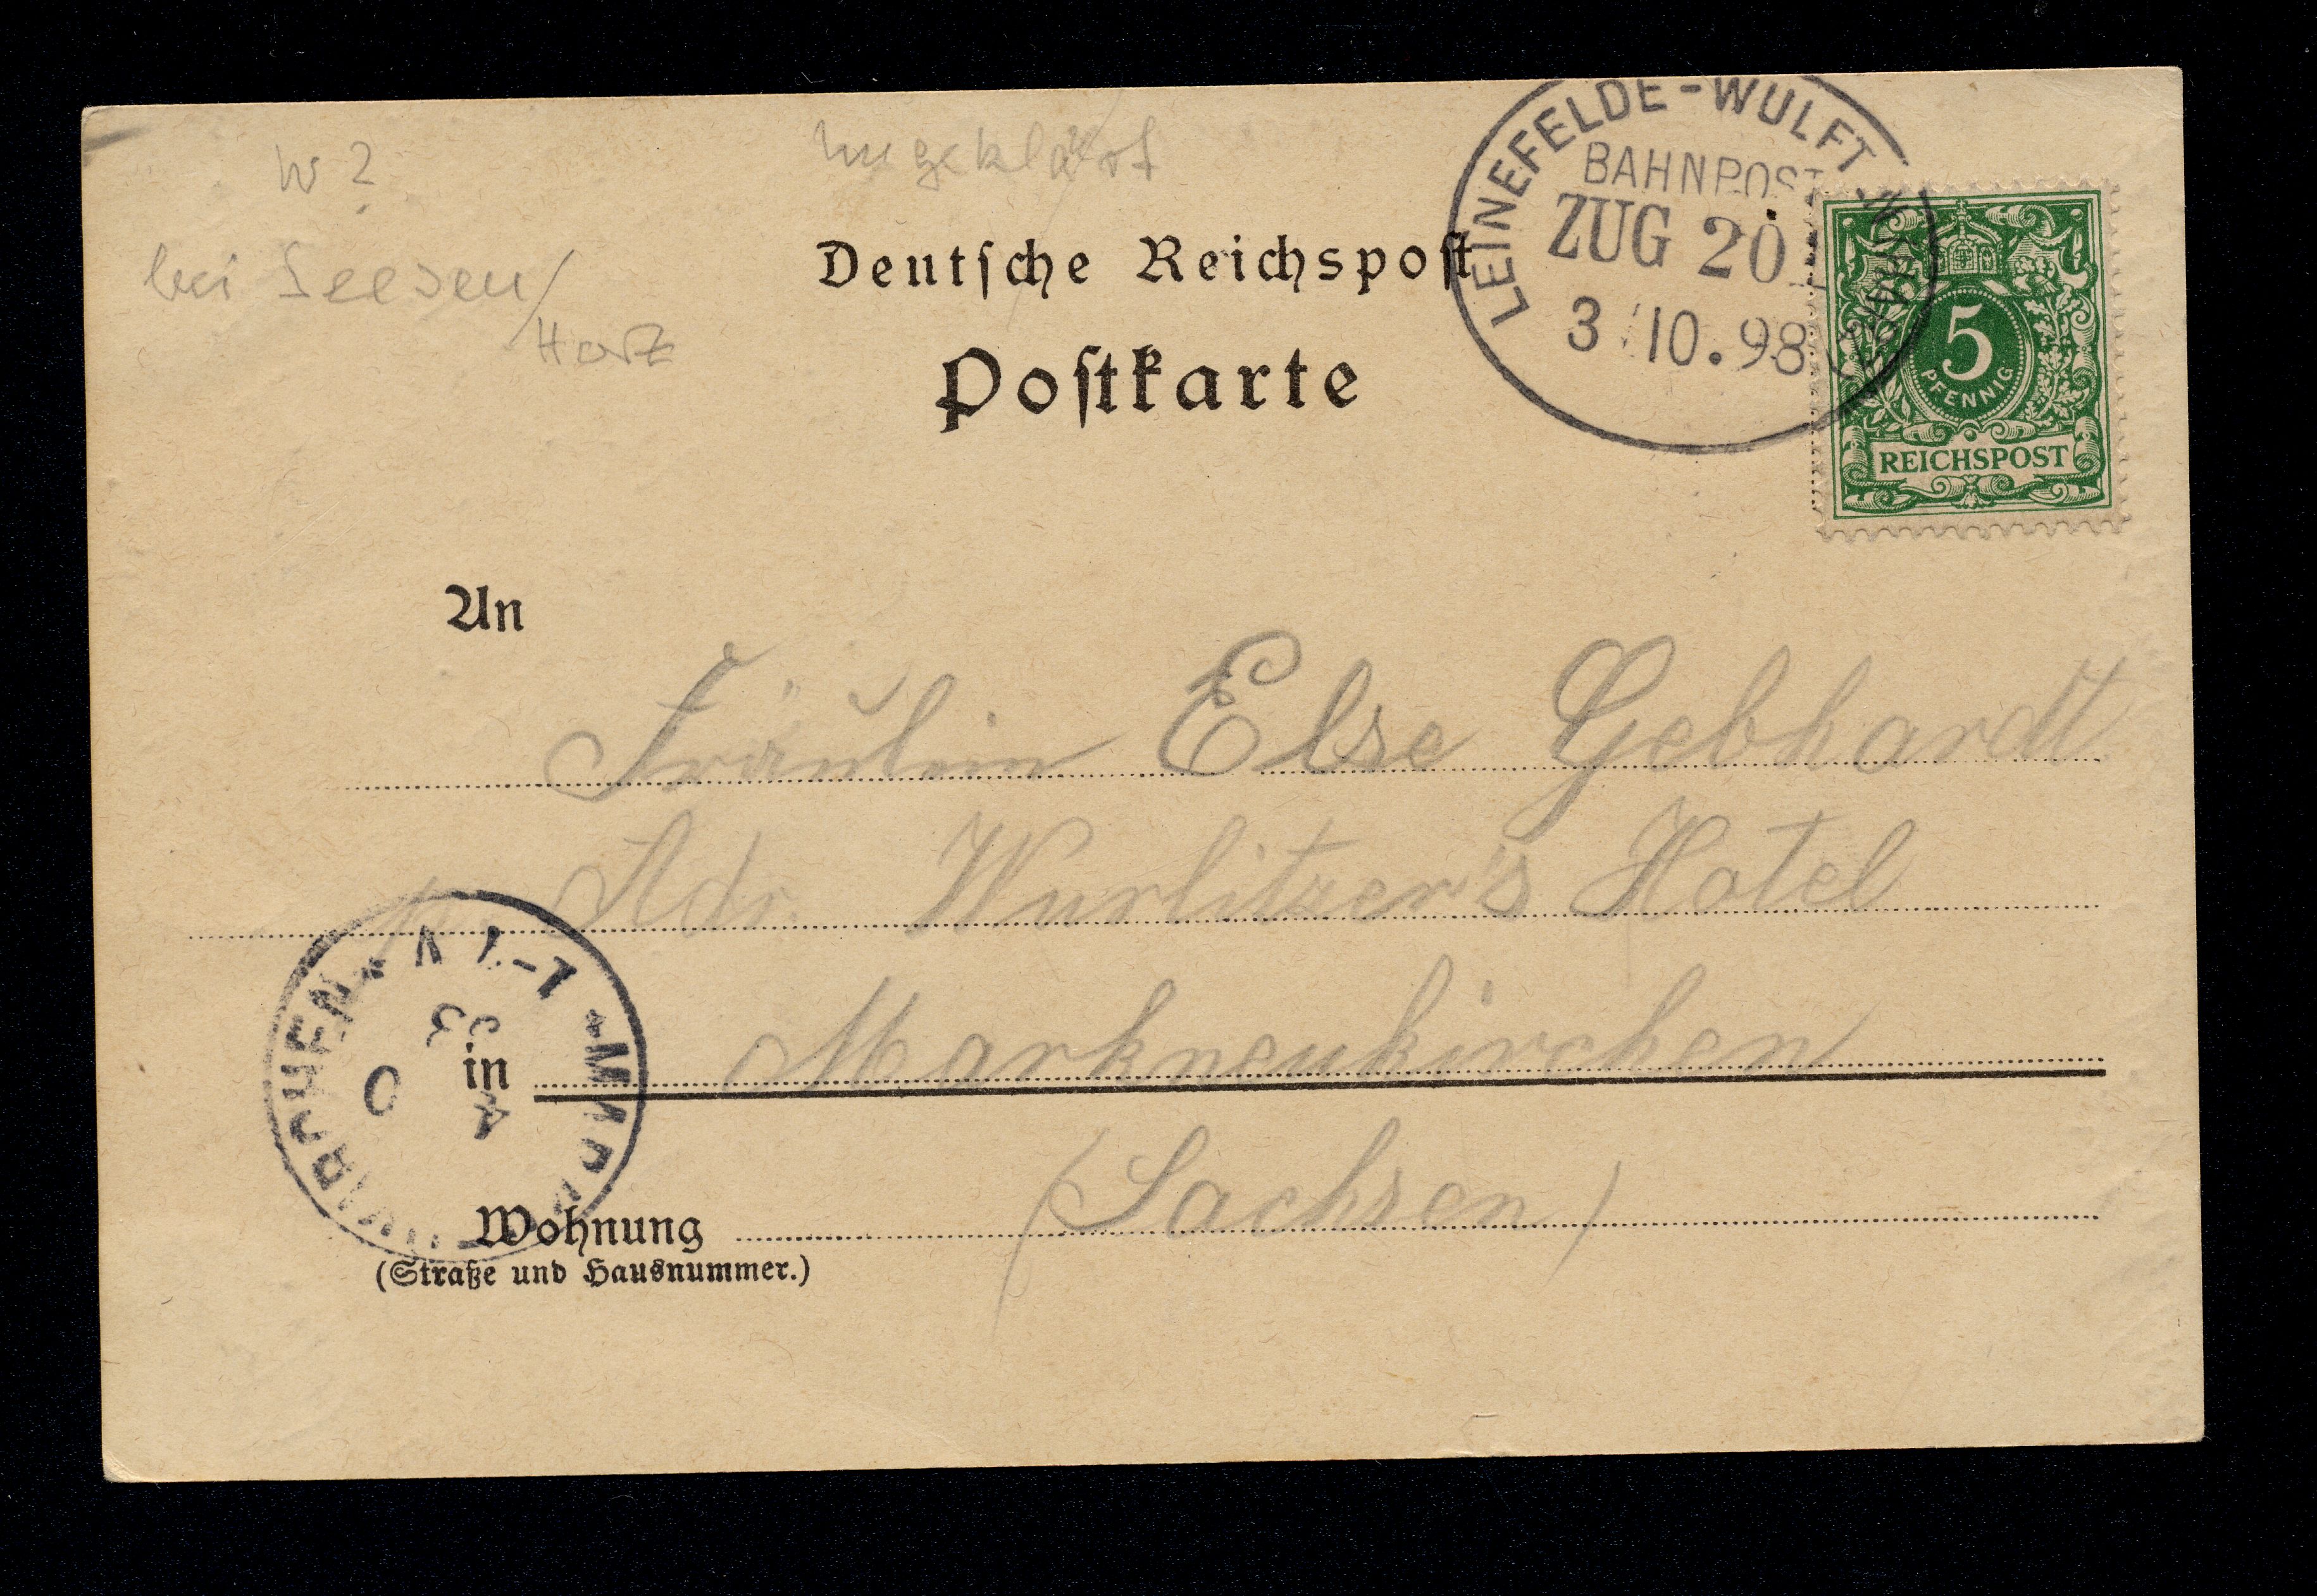 W?
ungeklärt
bei Seesen/
Harz
LEINEFELDE-WULFT
BAHNPOST
ZUG 20
3 10.98
Deutsche Reichspost
Postkarte
5
PFENNIG
REICHSPOST
An
Fräulein Else Gebhardt
p. Adr. Wurlitzer's Hotel
in Markneukirchen
Wohnung (Sachsen)
(Straße und Hausnummer.)